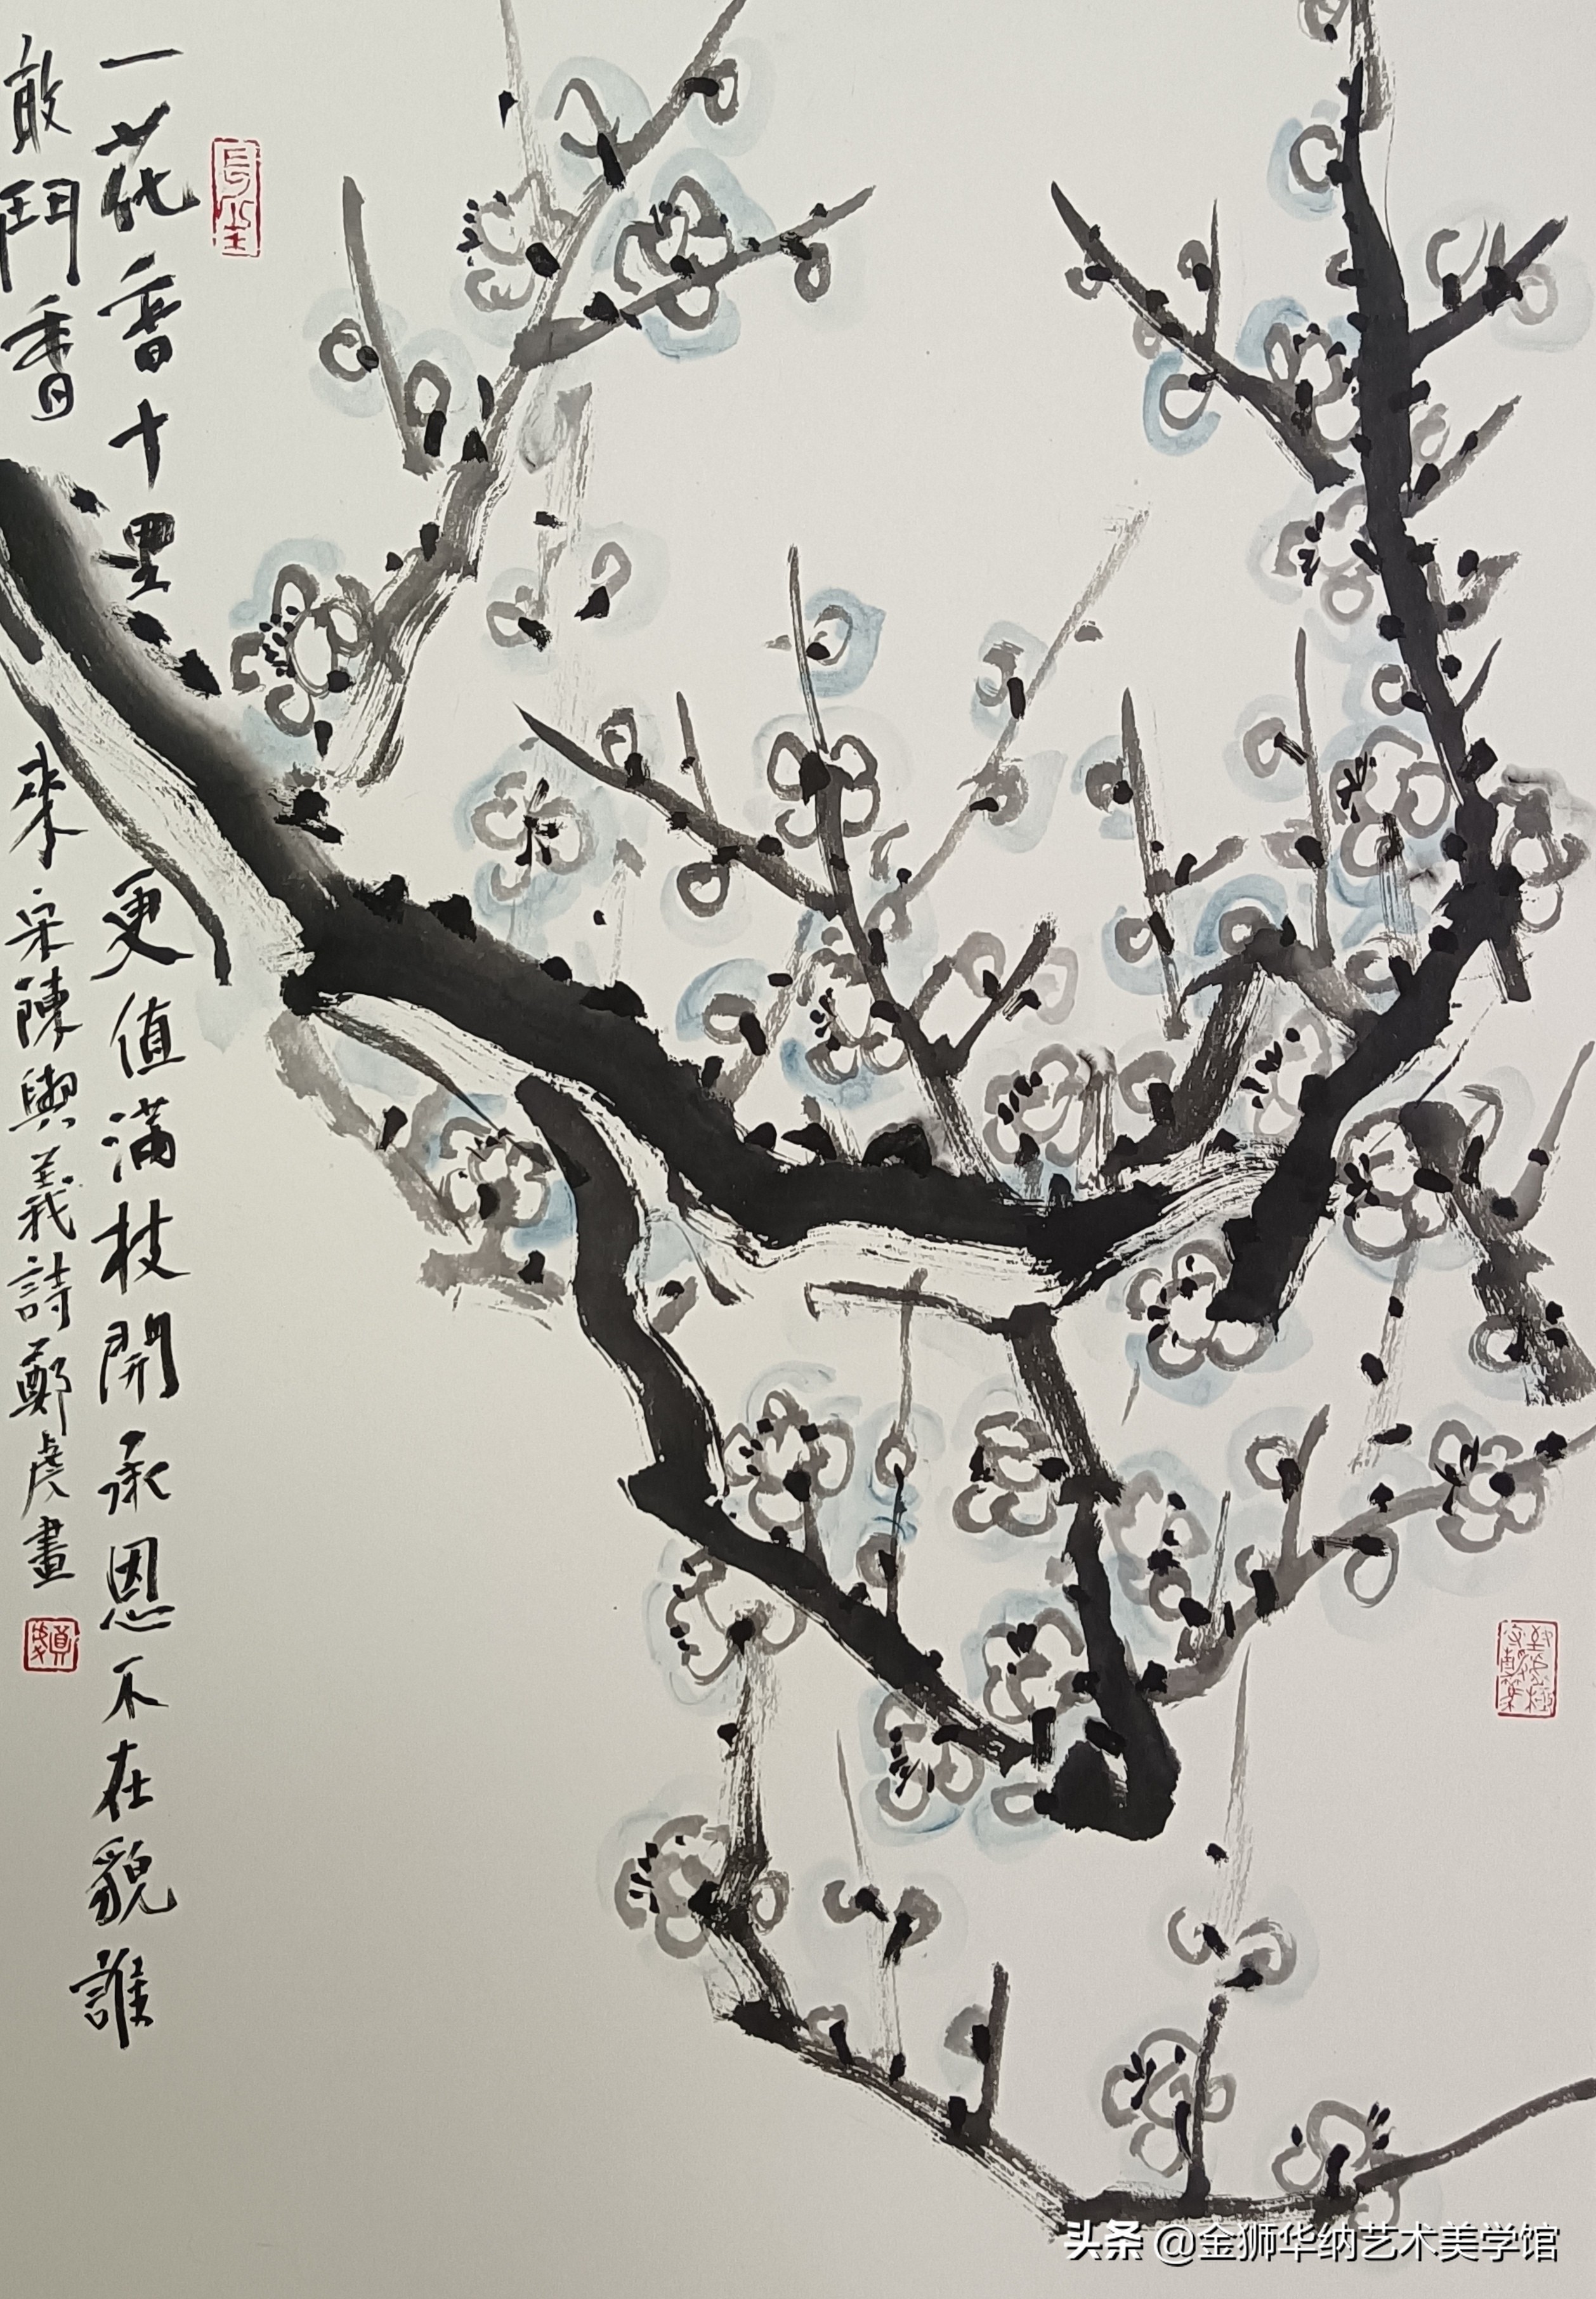 一花香十里更值滿枝開承恩不在貌誰
敢鬥香來宋陳與義詩鄭虎畫
头条 @金狮华纳艺术美学馆